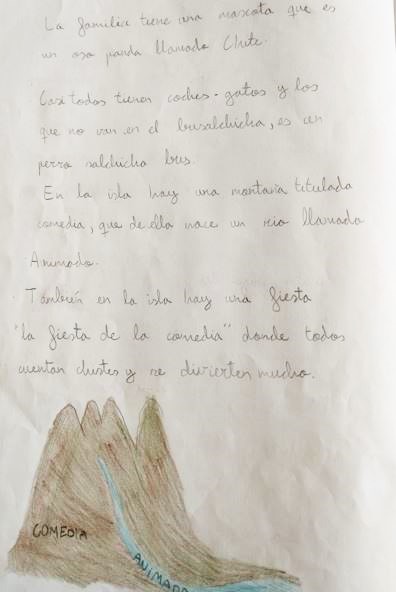 La familia tiene una mascota que es
un oso panda llamado Chite.
Casi todos tienen coches-gatos y los
que no van en el busalchicha, es un
perro salchicha bus.
En la isla hay una montaña titulada
comedia, que de ella nace un río llamado
Animado.
También en la isla hay una fiesta
"la fiesta de la comedia" donde todos
cuentan chistes y se divierten mucho.
COMEDIA
ANIMADO